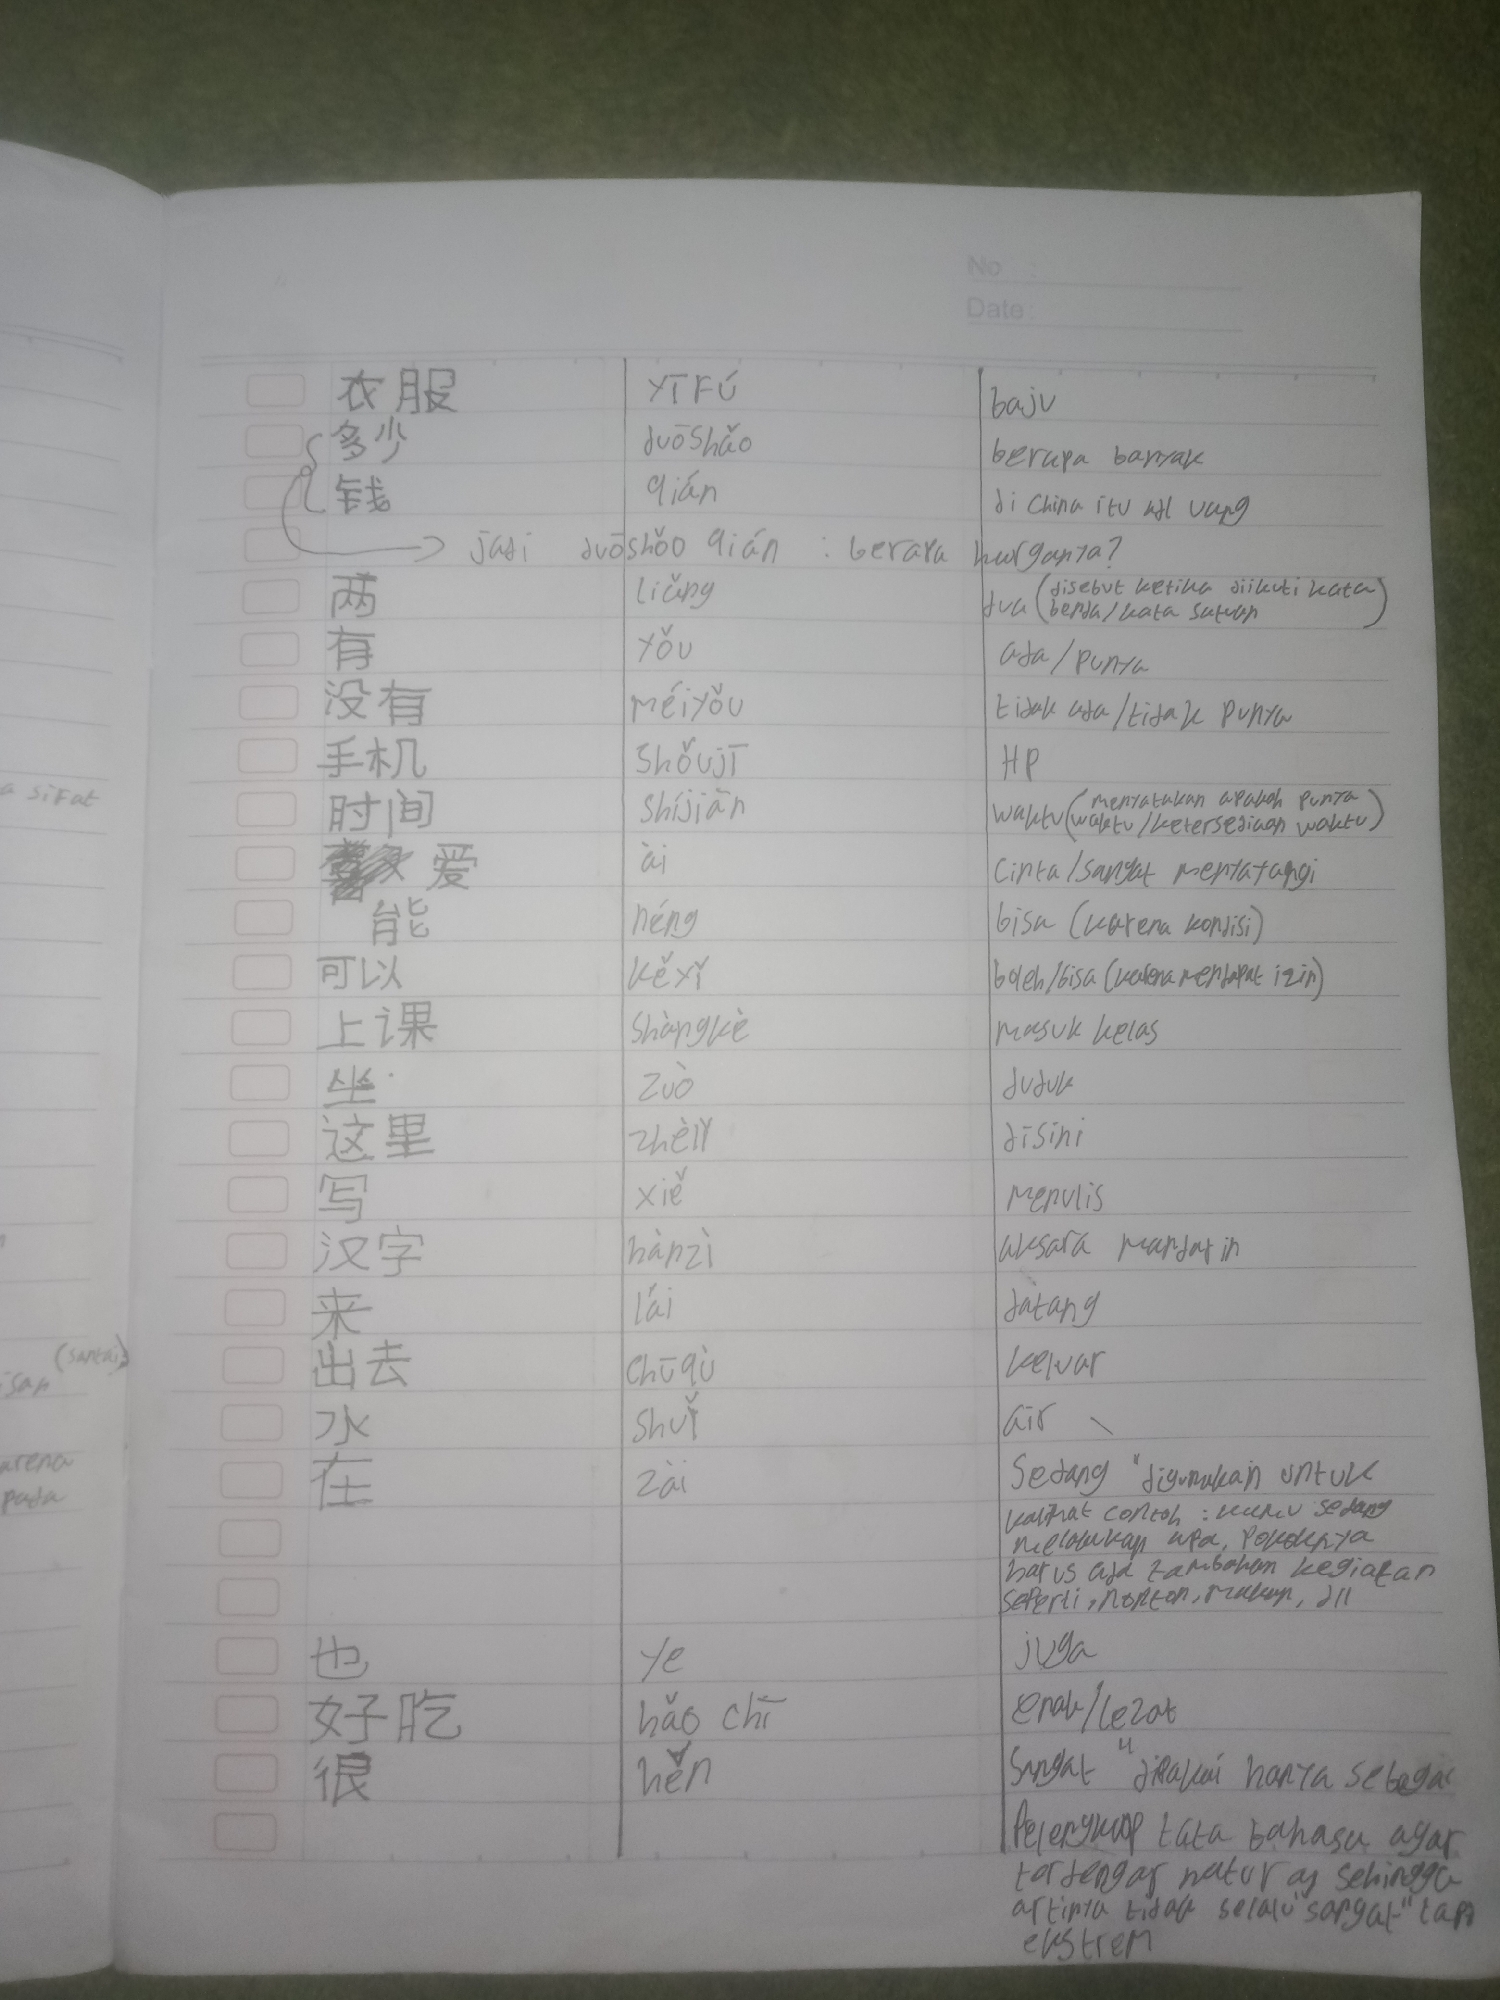 No :
Date :
衣服 yīfú baju
多少 duōshǎo berapa banyak
钱 qián di China itu adl uang
jadi duōshǎo qián : berapa harganya?
两 liǎng dua (disebut ketika diikuti kata
benda/kata satuan)
有 yǒu ada/punya
没有 méiyǒu tidak ada/tidak punya
手机 shǒujī HP
时间 shíjiān waktu (menyatakan apakah punya
waktu/ketersediaan waktu)
爱 ài cinta/sangat menyayangi
能 néng bisa (karena kondisi)
可以 kěyǐ boleh/bisa (karena mendapat izin)
上课 shàngkè masuk kelas
坐 zuò duduk
这里 zhèlǐ disini
写 xiě menulis
汉字 hànzì aksara mandarin
来 lái datang
出去 chūqù keluar
水 shuǐ air
在 zài sedang "digunakan untuk
kalimat contoh : kamu sedang
melakukan apa, pokoknya
harus ada tambahan kegiatan
seperti, nonton, makan, dll
也 ye juga
好吃 hǎo chī enak/lezat
很 hěn sangat "dipakai hanya sebagai
pelengkap tata bahasa agar
terdengar natural sehingga
artinya tidak selalu "sangat" tapi
ekstrem
a sifat
(santai)
isan
arena
pada